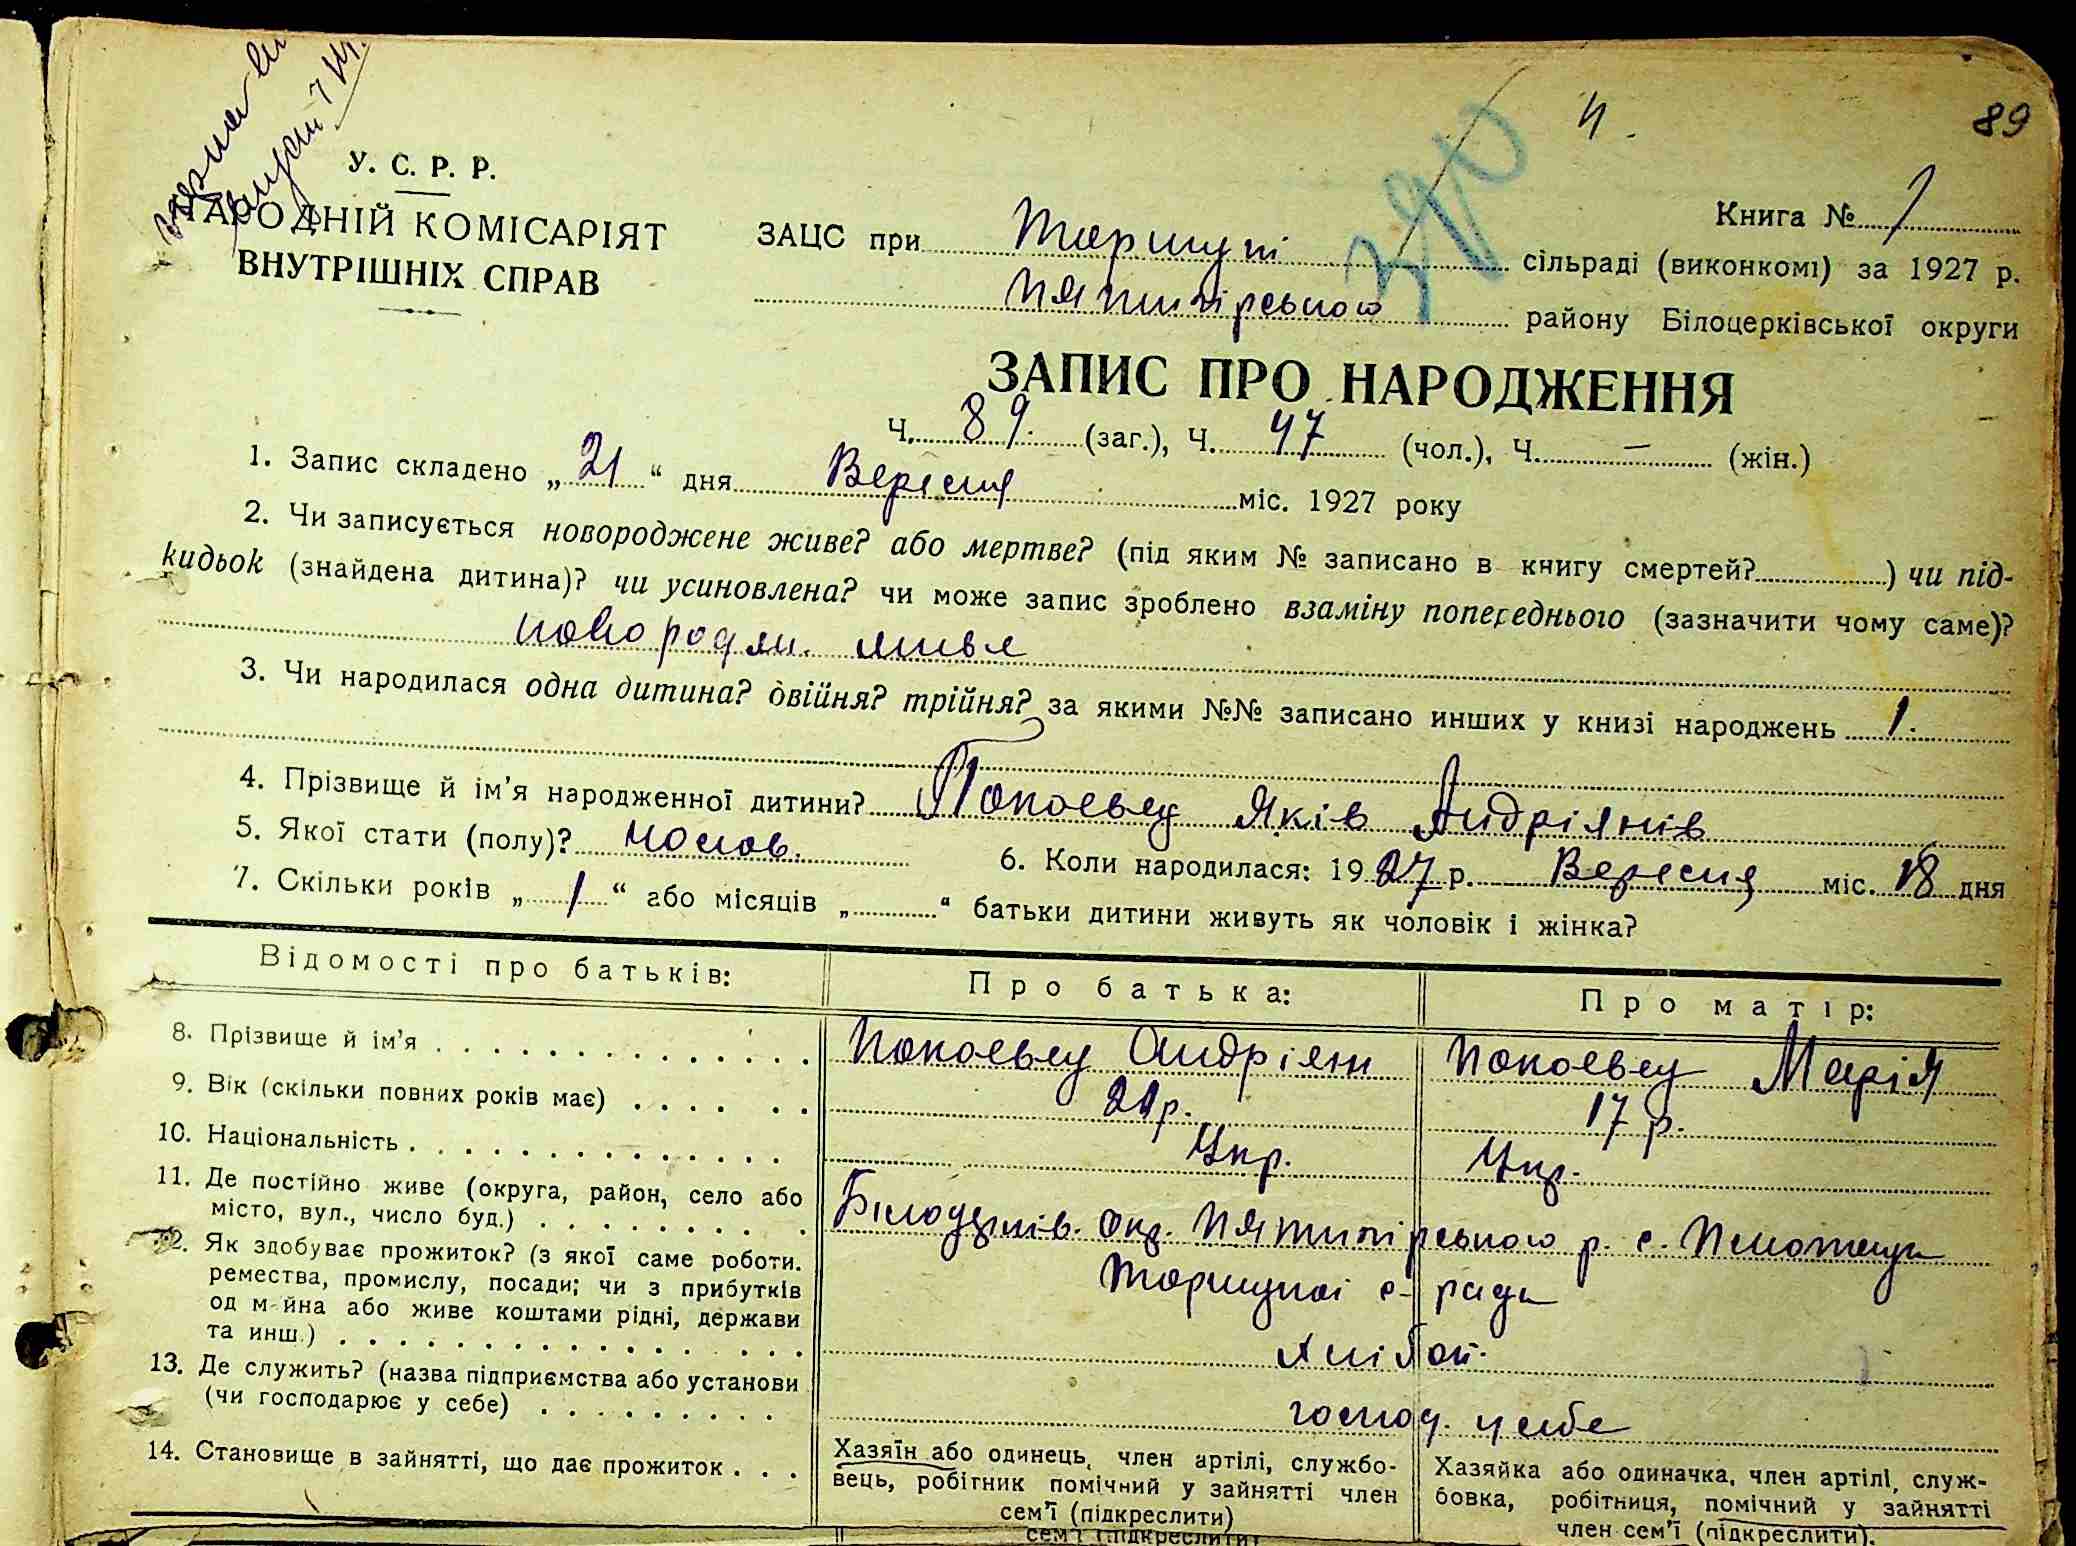 89
У. С. Р. Р.
НАРОДНІЙ КОМІСАРІЯТ
ВНУТРІШНІХ СПРАВ
Книга № 1
ЗАЦС при сільраді (виконкомі) за 1927 р.
Пятигірського району Білоцерківської округи
ЗАПИС ПРО НАРОДЖЕННЯ
Ч. 89. (заг.), Ч. 47 (чол.), Ч. — (жін.)
1. Запис складено „21“ дня Вересня міс. 1927 року
2. Чи записується новороджене живе? або мертве? (під яким № записано в книгу смертей?) чи під-
кидьок (знайдена дитина)? чи усиновлена? чи може запис зроблено взаміну попереднього (зазначити чому саме)?
новородж. живе
3. Чи народилася одна дитина? двійня? трійня? за якими №№ записано инших у книзі народжень 1.
4. Прізвище й ім'я народженної дитини? Яків Андріянів
5. Якої стати (полу)? чолов. 6. Коли народилася: 1927 р. Вересня міс. 18 дня
7. Скільки років „1“ або місяців „“ батьки дитини живуть як чоловік і жінка?
Відомості про батьків: Про батька: Про матір:
8. Прізвище й ім'я Андріян Марія
9. Вік (скільки повних років має) 17 р.
10. Національність Укр. Укр.
11. Де постійно живе (округа, район, село або
місто, вул., число буд.) Білоцерків. окр. Пятигірського р. с.
с-ради
12. Як здобуває прожиток? (з якої саме роботи.
ремества, промислу, посади; чи з прибутків
од майна або живе коштами рідні, держави
та инш.) Хлібоп.
13. Де служить? (назва підприємства або установи
(чи господарює у себе) господ. у себе
14. Становище в зайнятті, що дає прожиток
Хазяїн або одинець, член артілі, службо-
вець, робітник помічний у зайнятті член
сем'ї (підкреслити)
Хазяйка або одиначка, член артілі, служ-
бовка, робітниця, помічний у зайнятті
член сем'ї (підкреслити).
сем'ї (підкреслити)